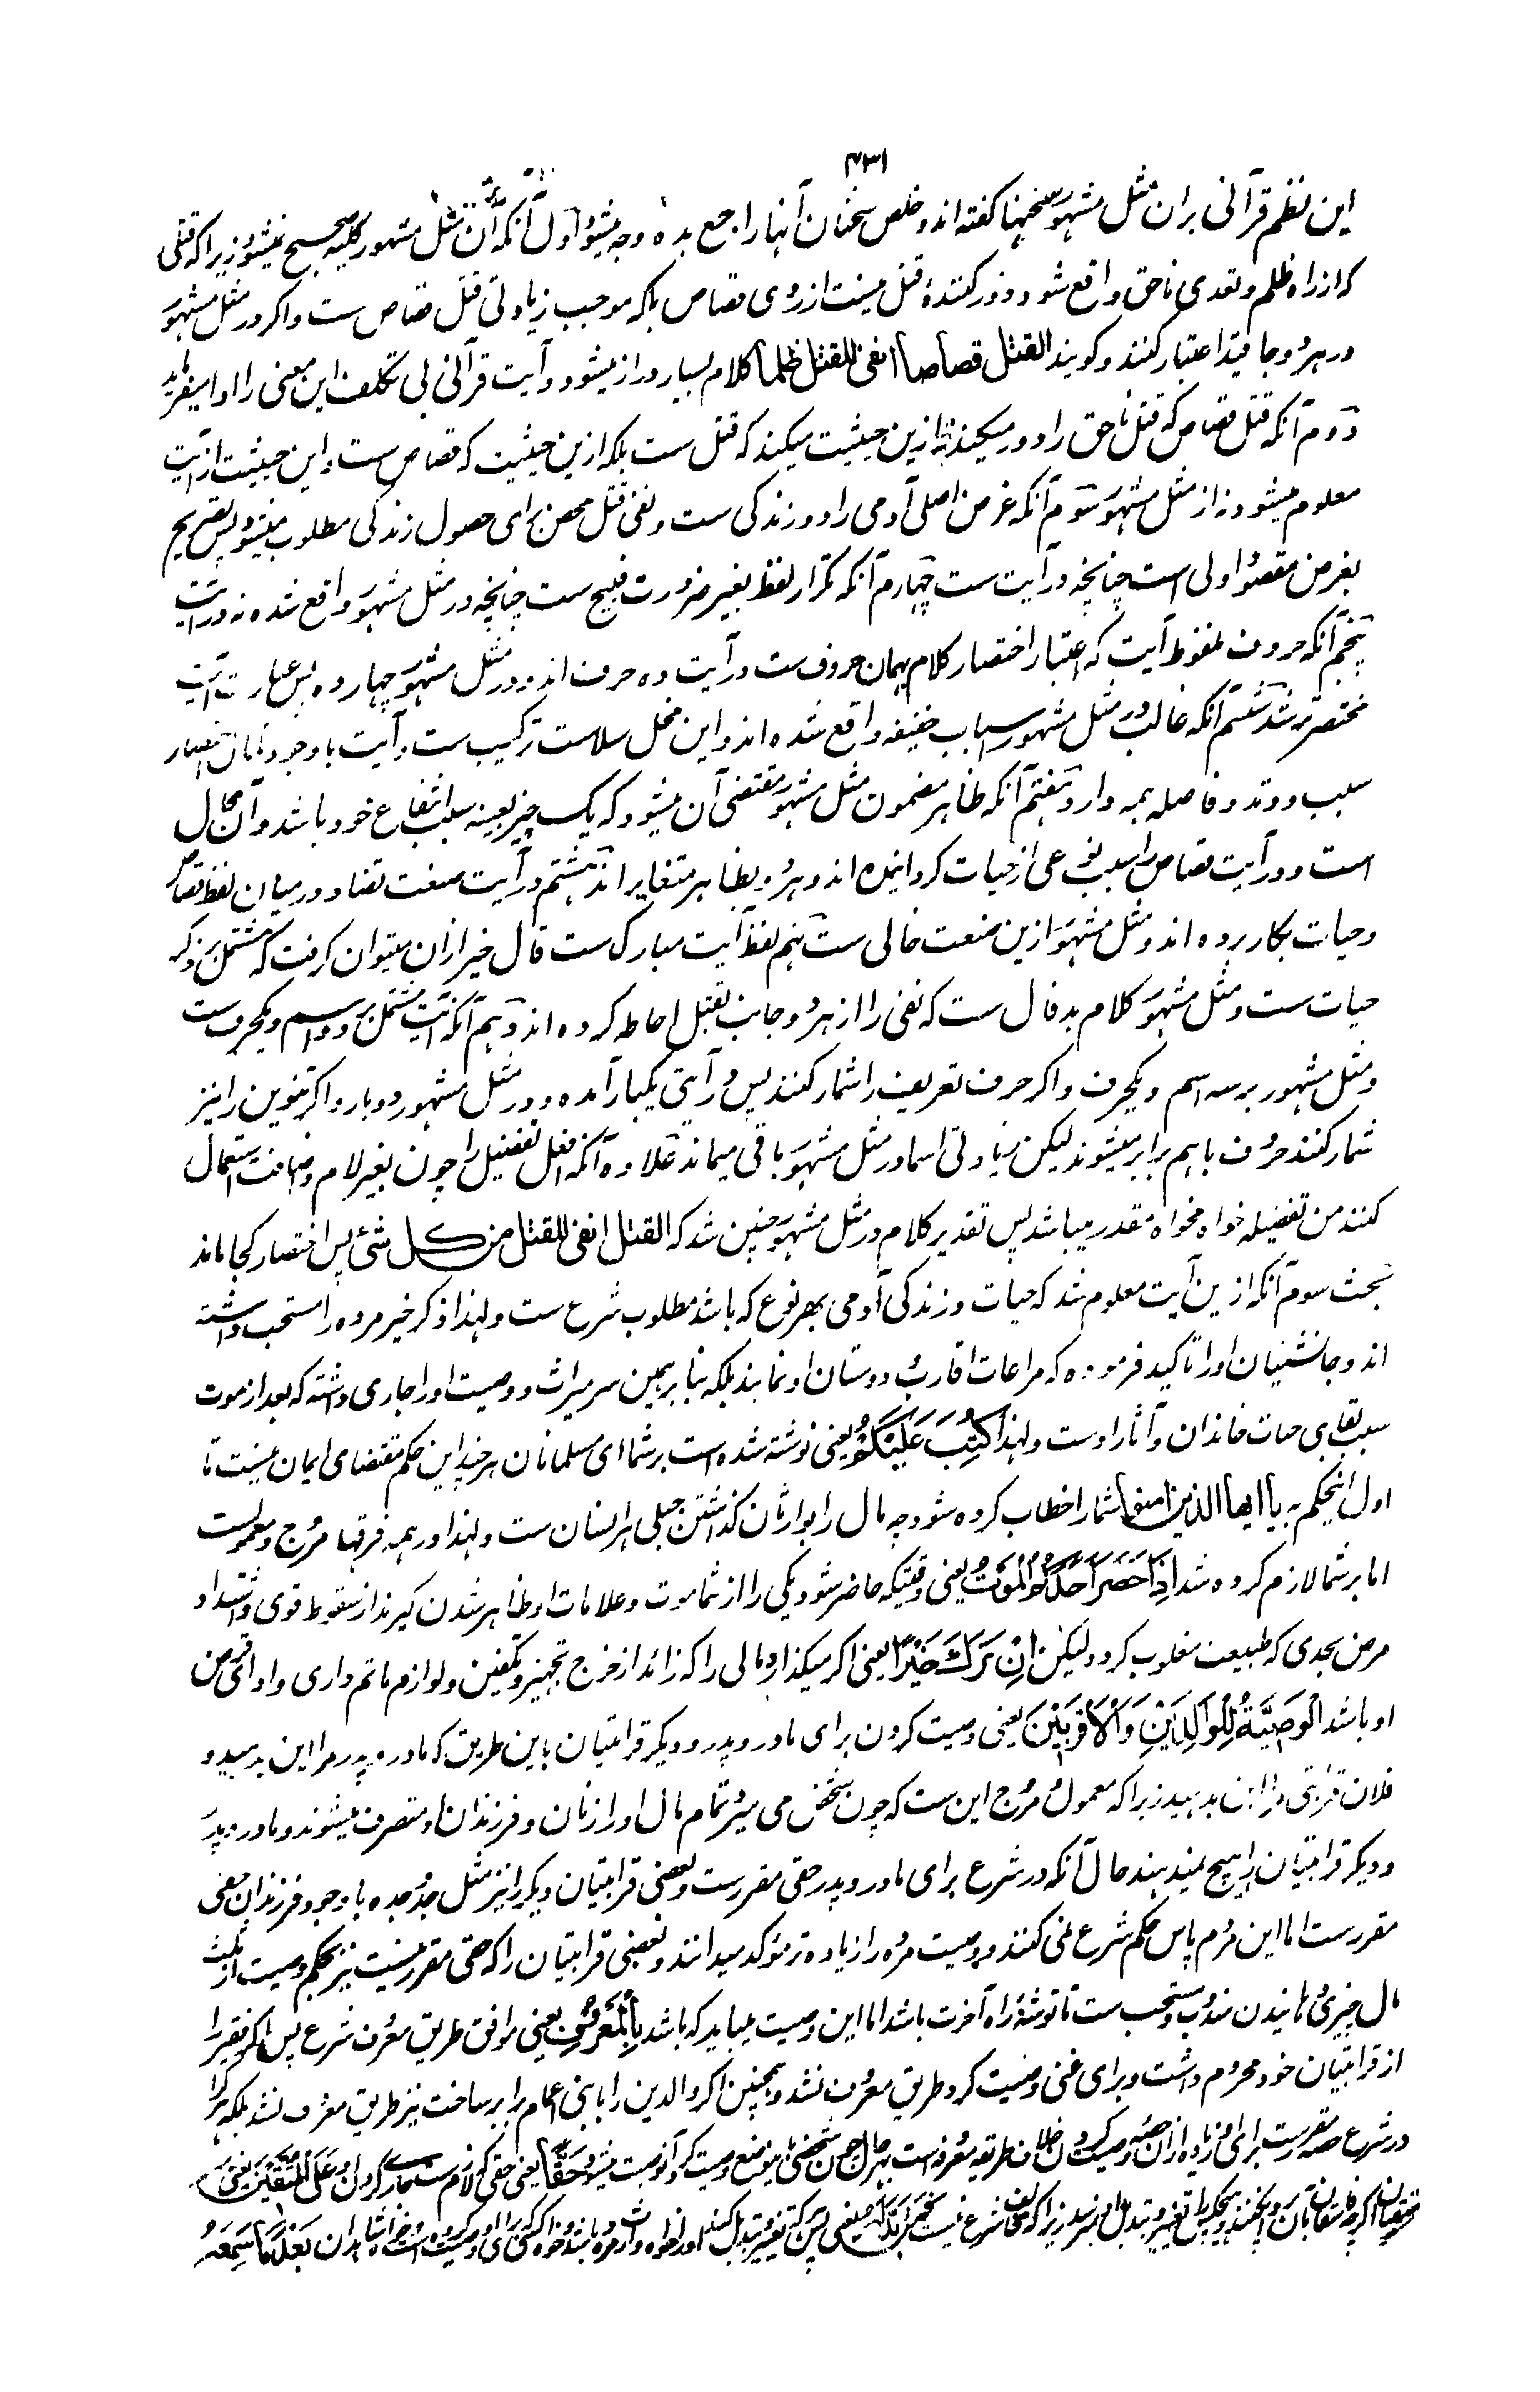 ۴۳۱
این نظم قرآنی بران مثل مشهور سخنها کفته اند و ملخص سخنان آنها راجع بده وجه میشود اول آنکه آن مثل مشهور کلیه صحیح نمیشود زیرا که قتلی
که از راه ظلم و تعدی ناحق واقع شود دور کنندهٔ قتل نیست از روی قصاص بلکه موجب زیادتی قتل قصاص ست و اکر در مثل مشهور
در هر دو جا قید اعتبار کنند و کویند القتل قصاصا انفی للقتل ظلما کلام بسیار دراز میشود و آیت قرآنی بی تکلف این معنی را ادا میفرماید
دوم آنکه قتل قصاص که قتل ناحق را دور میکند نه ازین حیثیت میکند که قتل ست بلکه ازین حیثیت که قصاص ست و این حیثیت از آیت
معلوم میشود نه از مثل مشهور سوم آنکه غرض اصلی آدمی را در زندکی ست و نفی قتل محض برای حصول زندکی مطلوب میشود پس تصریح
بغرض مقصود اولی است چنانچه در آیت ست چهارم آنکه تکرار لفظ بغیر ضرورت قبیح ست چنانچه در مثل مشهور واقع شده نه در آیت
پنجم آنکه حروف ملفوظ آیت که اعتبار اختصار کلام بهمان حروف ست در آیت ده حرف اند و در مثل مشهور چهارده پس عبارت آیت
مختصرتر شد ششم آنکه غالب در مثل مشهور اسباب خفیفه واقع شده اند و این مخل سلاست ترکیب ست و آیت با وجود
سبب و وتد و فاصله همه دارد هفتم آنکه ظاهر مضمون مثل مشهور مقتضی آن میشود که یک چیز بعینه سبب انتفاع خود باشد و آن محال
است و در آیت قصاص را سبب نوعی از حیات کردانیده اند و هر دو بظاهر متغایر اند هشتم در آیت صنعت تضاد در میان لفظ قصاص
و حیات بکار برده اند و مثل مشهور ازین صنعت خالی ست نهم لفظ آیت مبارک ست فال خیر ازان میتوان کرفت که مشتمل بر ذکر
حیات ست و مثل مشهور کلام بدفال ست که نفی را از هر دو جانب بقتل احاطه کرده اند دهم آنکه آیت مشتمل بر دو اسم و یکحرف ست
و مثل مشهور بر سه اسم و یکحرف و اکر حرف تعریف را شمار کنند پس در آیتی یکبار آمده و در مثل مشهور دو بار و اکر تنوین را نیز
شمار کنند حروف باهم برابر میشوند لیکن زیادتی اسما در مثل مشهور باقی میماند علاوه آنکه افعل تفضیل را چون بغیر لام و اضافت استعمال
کنند من تفضیلیه خواه مخواه مقدر میباشد پس تقدیر کلام در مثل مشهور چنین شد که القتل انفی للقتل من کل شئ پس اختصار کجا ماند
بحث سوم آنکه ازین آیت معلوم شد که حیات و زندکی آدمی بهر نوع که باشد مطلوب شرع ست و لهذا ذکر خیر مرده را مستحب داشته
اند و جانشینان او را تاکید فرموده که مراعات اقارب و دوستان او نمایند بلکه بنابر همین سر میراث و وصیت او را جاری داشته که بعد از موت
سبب بقای حیات خاندان و آثار اوست و لهذا کُتِبَ عَلَیْکُمْ یعنی نوشته شده است بر شما ای مسلمانان هر چند این حکم مقتضای ایمان نیست تا
اول اینحکم به یا ایها الذین امنوا شما را خطاب کرده شود چه مال را بوارثان کذاشتن جبلی هر انسان ست و لهذا در همه فرقها مروج و معمولست
اما بر شما لازم کرده شد اِذَا حَضَرَ اَحَدَکُمُ الْمَوْتُ یعنی وقتیکه حاضر شود یکی را از شما موت و علامات او ظاهر شدن کیرند از سقوط قوی و اشتداد
مرض بحدی که طبیعت مغلوب کردد لیکن اِنْ تَرَکَ خَیْرًا یعنی اکر میکذارد مالی را که زائد از خرج تجهیز و تکفین و لوازم ماتم داری و ادای قرض
او باشد الْوَصِیَّةُ لِلْوَالِدَیْنِ وَالْاَقْرَبِیْنَ یعنی وصیت کردن برای مادر و پدر و دیکر قرابتیان باین طریق که مادر و پدر مرا این بدهید و
فلان قرابتی مرا این بدهید زیرا که معمول و مروج این ست که چون شخص می میرد تمام مال او را زنان و فرزندان او متصرف میشوند و مادر و پدر
و دیکر قرابتیان را هیچ نمیدهند حال آنکه در شرع برای مادر و پدر حقی مقررست و بعضی قرابتیان دیکر را نیز مثل جد و جده با وجود فرزندان حقی
مقررست اما این مردم پاس حکم شرع نمی کنند و وصیت مرده را زیاده تر مؤکد میدانند و بعضی قرابتیان را که حقی مقرر نیست نیز بحکم وصیت از ثلث
مال چیزی دهانیدن مندوب و مستحب ست تا توشهٔ راه آخرت باشد اما این وصیت میباید که باشد بِالْمَعْرُوْفِ یعنی موافق طریق معروف شرع پس اکر فقیر را
از قرابتیان خود محروم داشت و برای غنی وصیت کرد طریق معروف نشد و همچنین اکر والدین را با بنی اعمام برابر ساخت نیز طریق معروف نشد بلکه هر کرا
در شرع حصه مقررست برای او زیاده ازان حصه وصیت کردن خلاف طریقه معروفه است بهرحال چون شخصی باین وضع وصیت کرد آنوصیت میشود حَقًّا یعنی حقی که لازم ست جاری کردن او عَلَی الْمُتَّقِیْنَ یعنی بر
متقیان زیرا که خلاف شرع نیست فَمَنْ بَدَّلَهُ یعنی پس هر که تغییر و تبدیل کند او را خواه وارث مرده باشد و خواه بَعْدَ مَا سَمِعَهُ